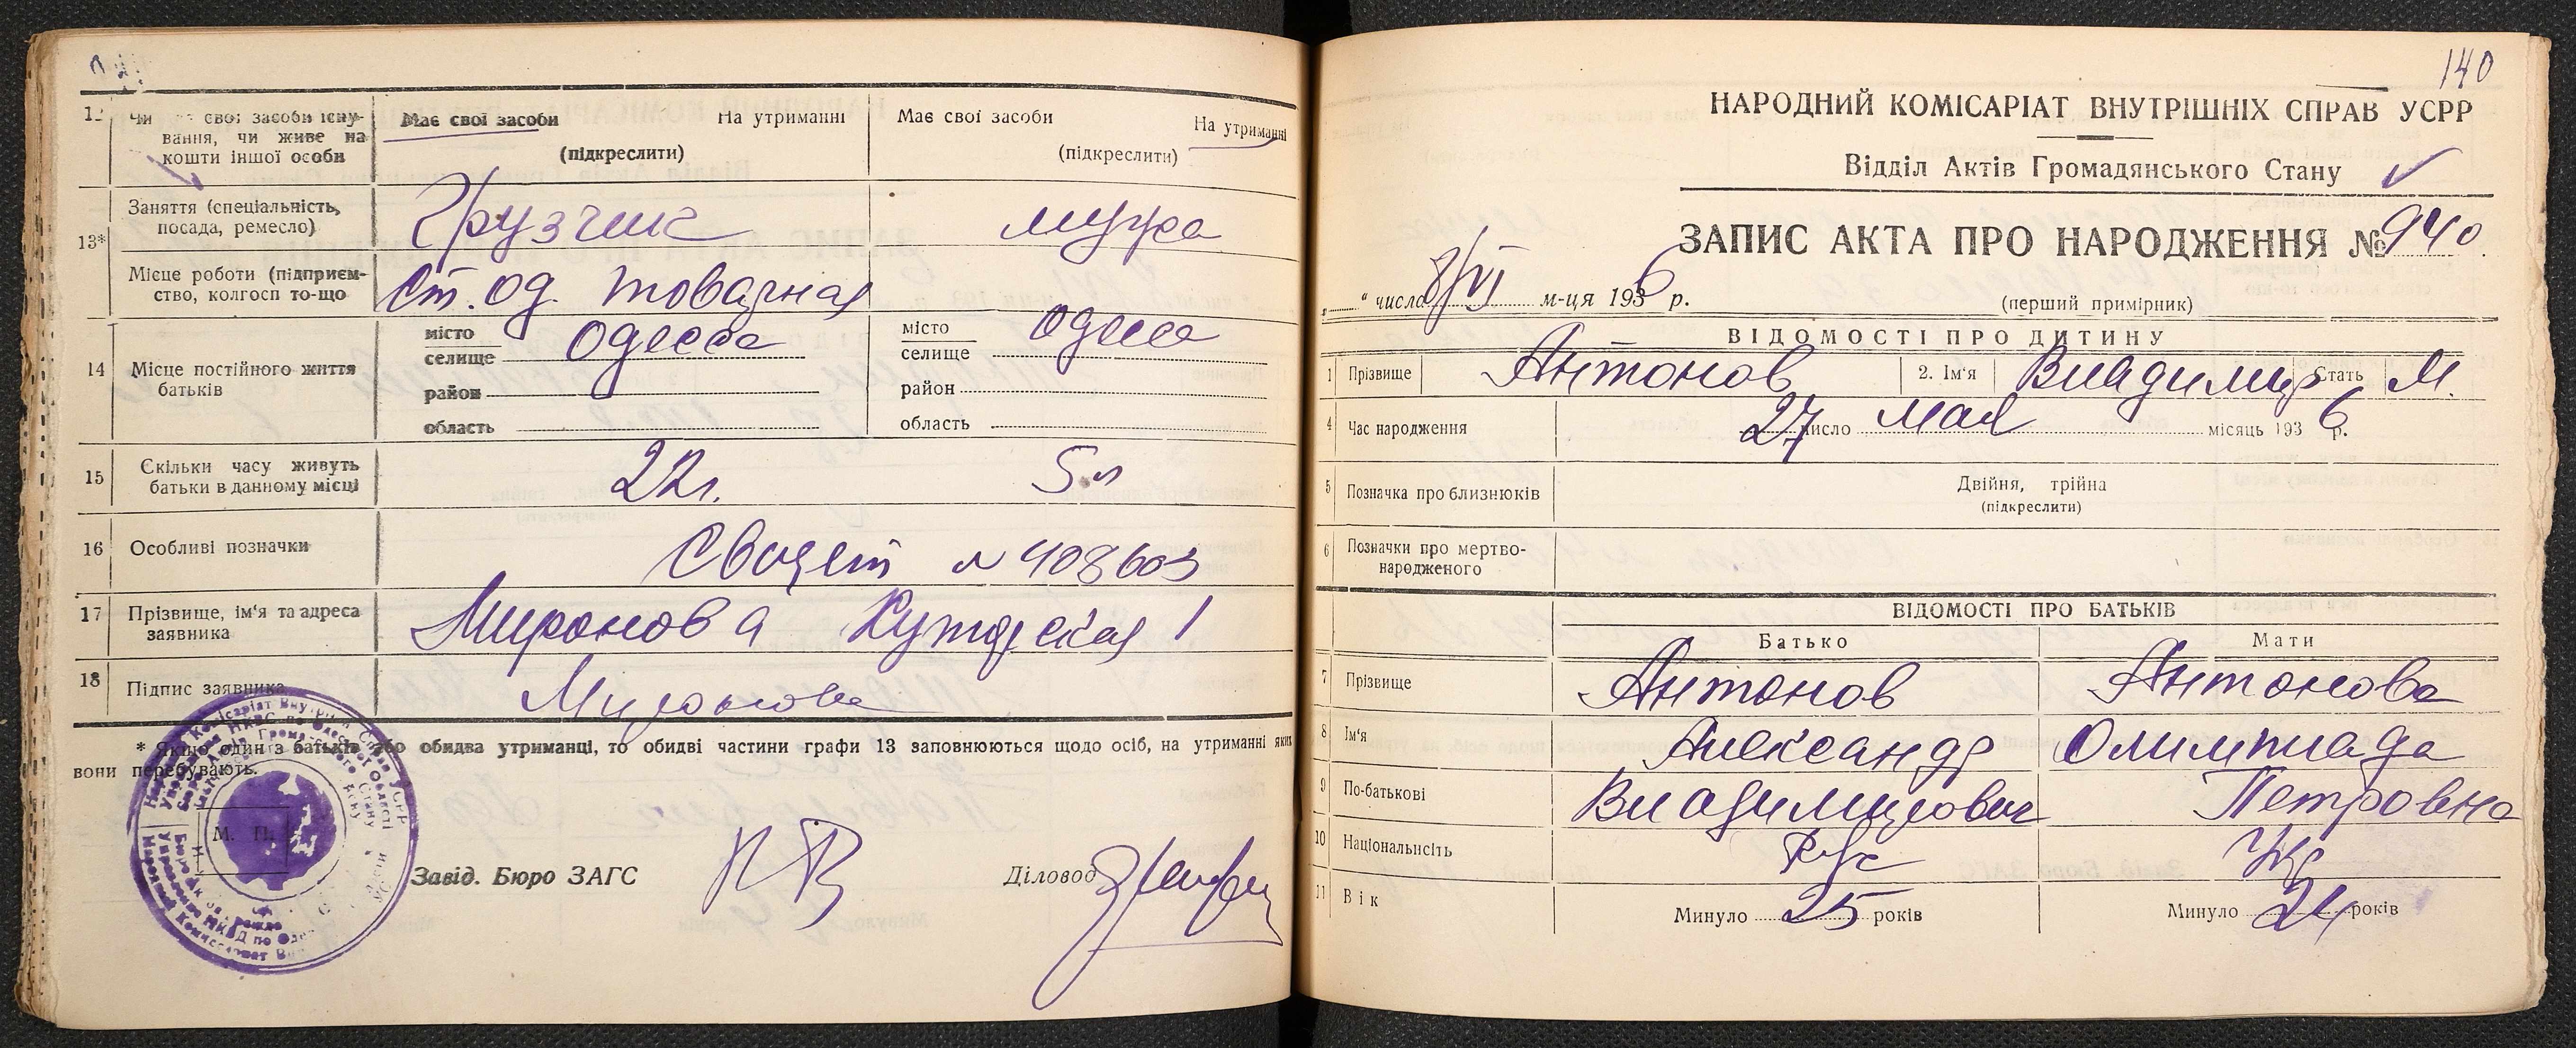 12 Чи має свої засоби існу-
вання, чи живе на
кошти іншої особи
Має свої засоби На утриманні
(підкреслити)
Має свої засоби На утриманні
(підкреслити)
13*
Заняття (спеціальність,
посада, ремесло)
Грузчик
мужа
Місце роботи (підприєм-
ство, колгосп то-що
Ст. Од. товарная
14 Місце постійного життя
батьків
місто
селище Одесса
район
область
місто
селище Одесса
район
область
15 Скільки часу живуть
батьки в данному місці
22 г.
5 л
16 Особливі позначки
Свидет N 408603
17 Прізвище, ім'я та адреса
заявника
Миронова 1
18 Підпис заявника
Миронова
* Якщо один з батьків або обидва утриманці, то обидві частини графи 13 заповнюються щодо осіб, на утриманні яких
вони перебувають.
М. П.
Завід. Бюро ЗАГС
Діловод
140
НАРОДНИЙ КОМІСАРІАТ ВНУТРІШНІХ СПРАВ УСРР
Відділ Актів Громадянського Стану
ЗАПИС АКТА ПРО НАРОДЖЕННЯ № 940
„ “ числа 8/VI м-ця 1936 р.
(перший примірник)
ВІДОМОСТІ ПРО ДИТИНУ
1 Прізвище Антонов 2. Ім'я Владимир Стать М.
4 Час народження 27 число мая місяць 1936 р.
5 Позначка про близнюків
Двійня, трійна
(підкреслити)
6 Позначки про мертво-
народженого
ВІДОМОСТІ ПРО БАТЬКІВ
Батько Мати
7 Прізвище Антонов Антонова
8 Ім'я Александр Олимпиада
9 По-батькові Владимирович Петровна
10 Національність Рус Укр
11 Вік Минуло 25 років Минуло 24 років